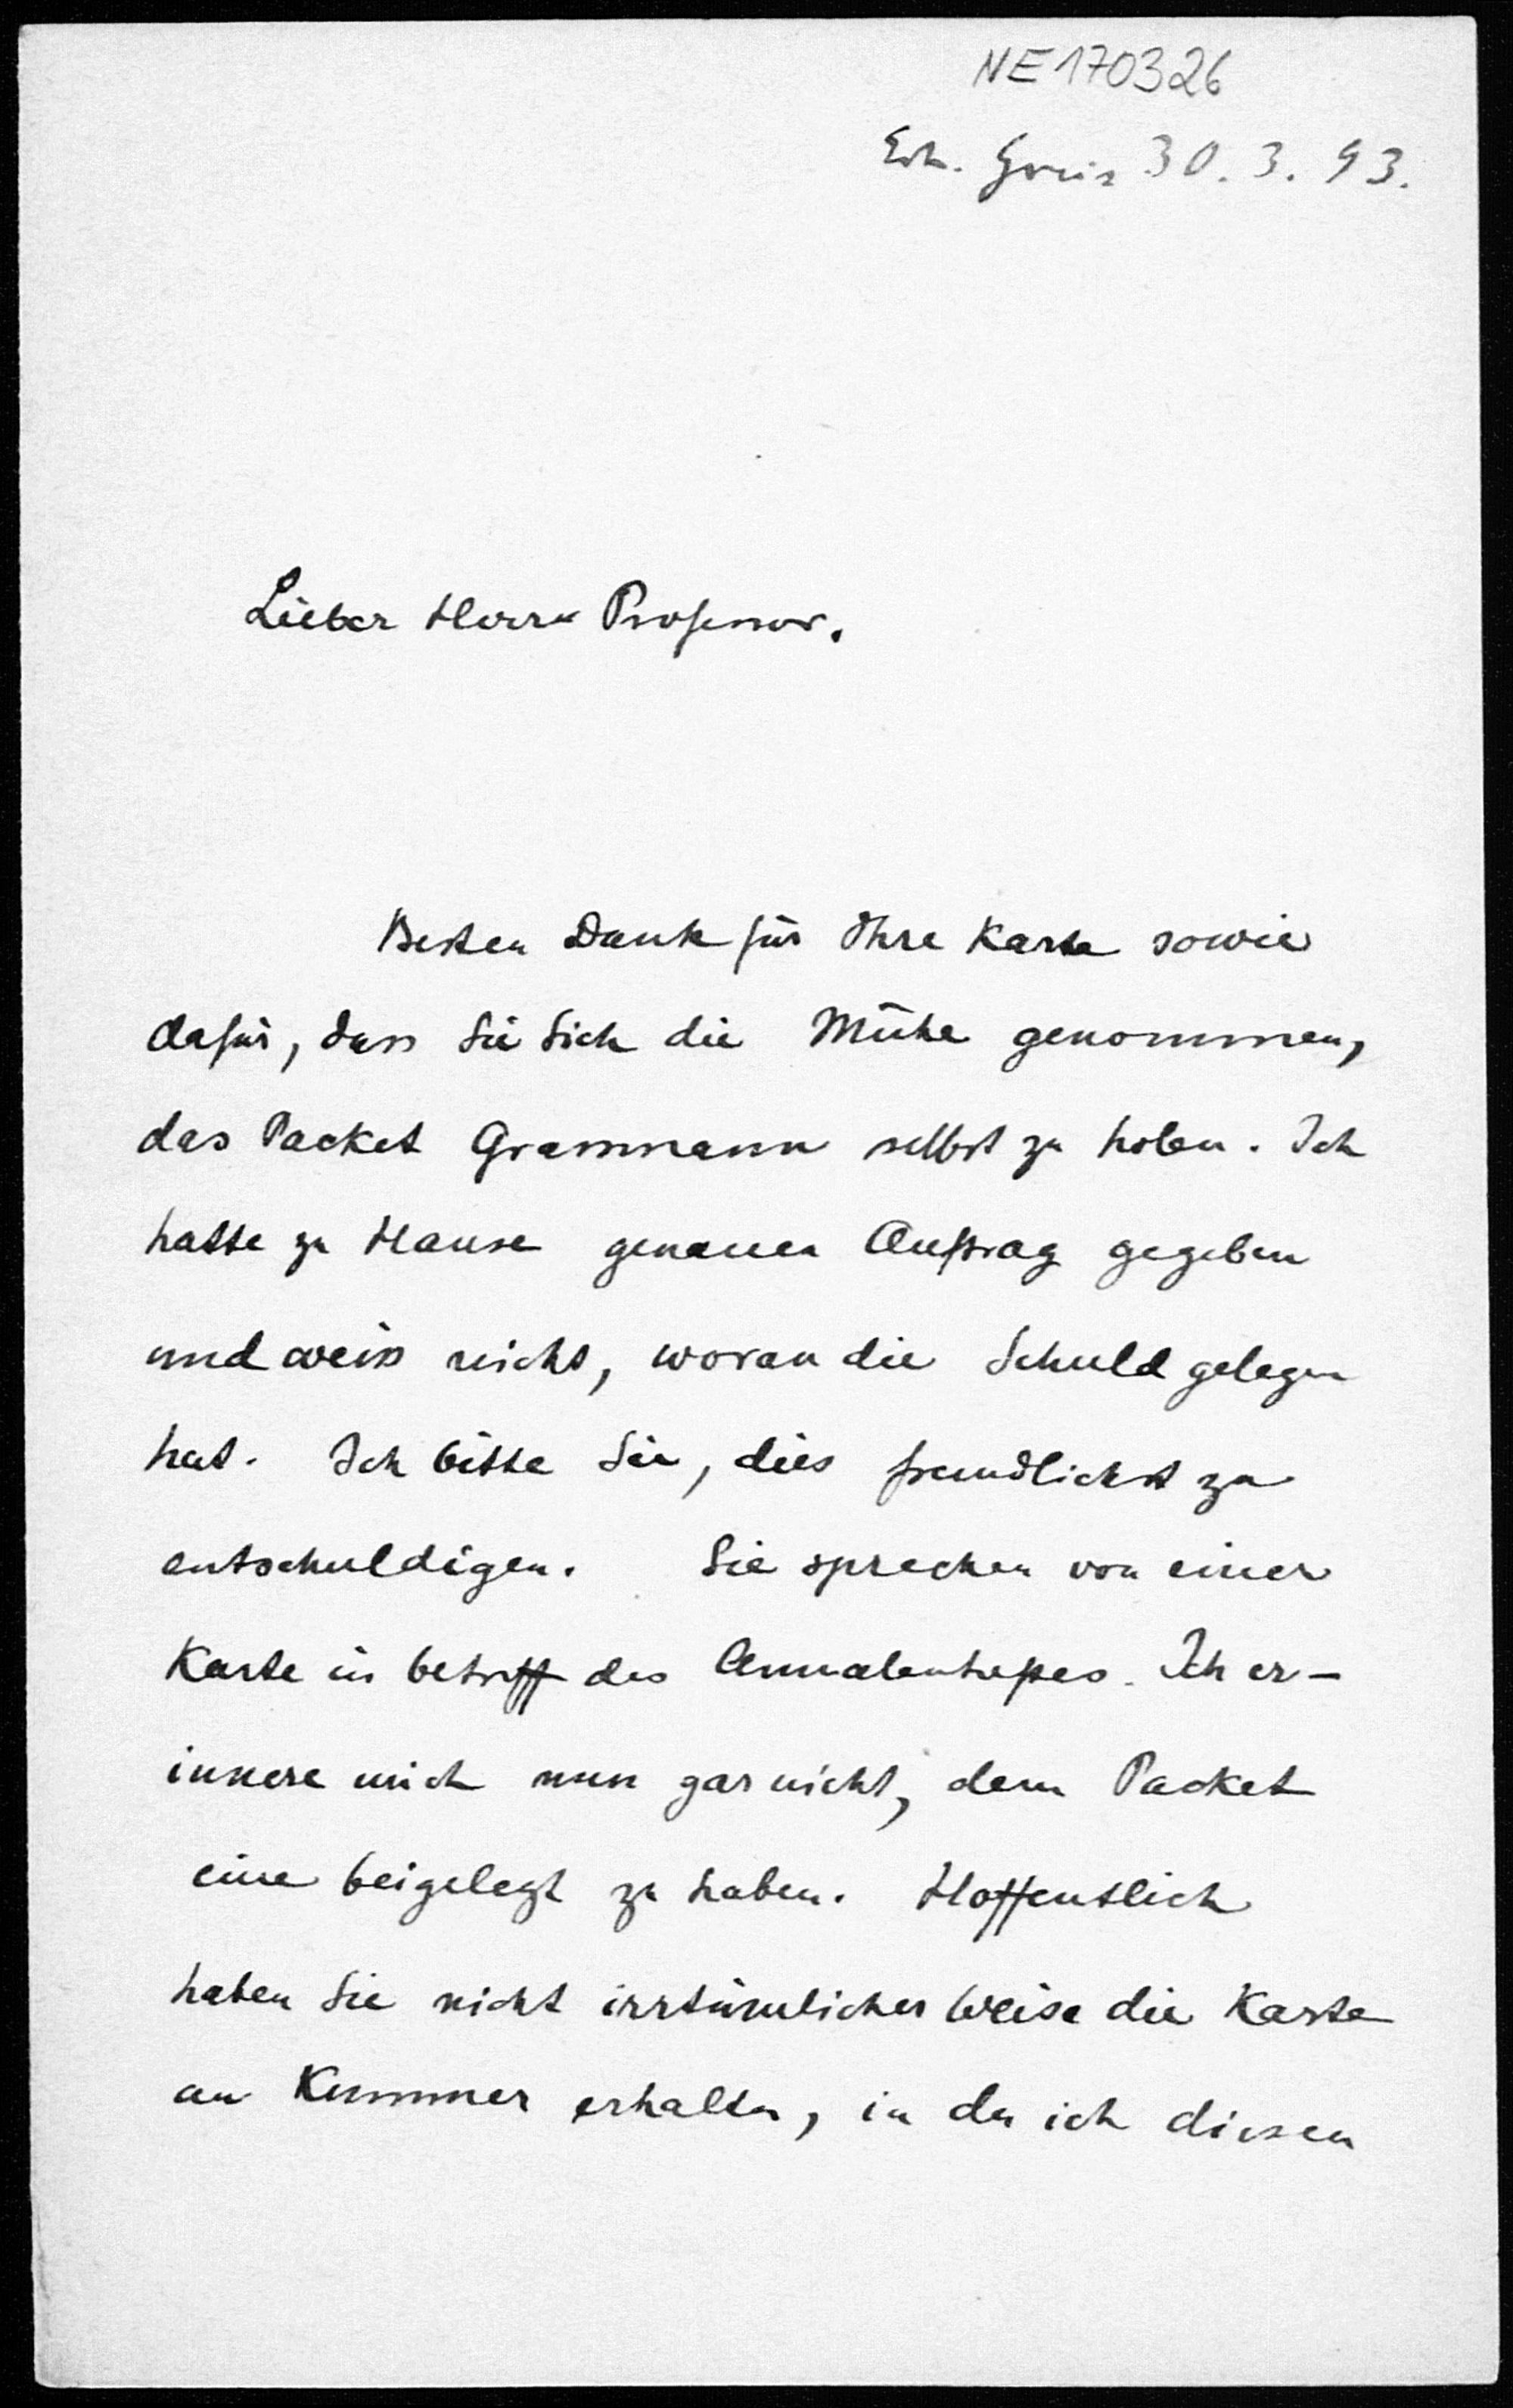 NE170326
30.3.93.
Lieber Herr Professor.
Besten Dank für Ihre Karte sowie
dafür, dass Sie Sich die Mühe genommen,
das Packet Grassmann selbst zu holen. Ich
hatte zu Hause genauen Auftrag gegeben
und weiss nicht, woran die Schuld gelegen
hat. Ich bitte Sie, dies freundlichst zu
entschuldigen. Sie sprechen von einer
Karte in betreff des Annalenheftes. Ich er-
innere mich nun gar nicht, dem Packet
eine beigelegt zu haben. Hoffentlich
haben Sie nicht irrtümlicher Weise die Karte
an Kummer erhalten, in der ich diesen